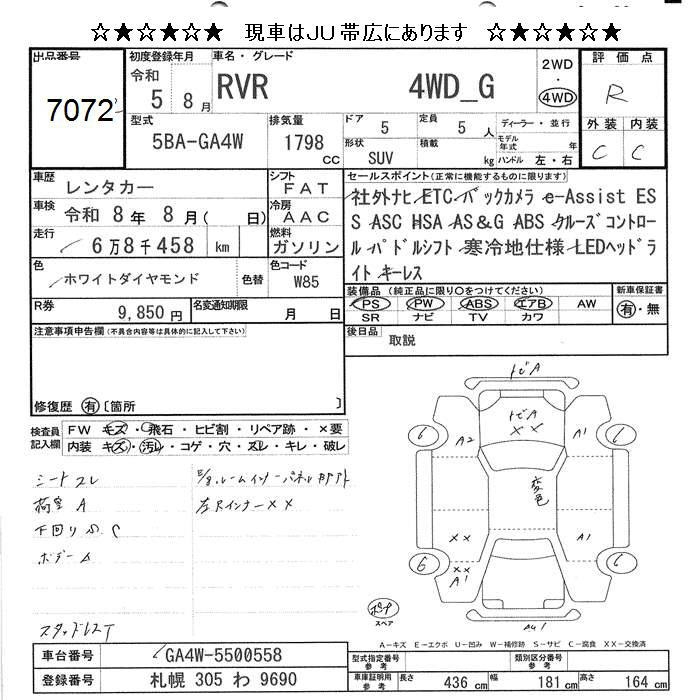 ☆★☆★☆★ 現車はJU帯広にあります ☆★☆★☆★
出品番号
7072
初度登録年月
令和
5 8月
車名・グレード
RVR 4WD_G
2WD
・
4WD
評価点
R
型式
5BA-GA4W
排気量
1798
CC
ドア
5
定員
5 人
形状
SUV
積載
kg
ディーラー・並行
モデル年式 年
ハンドル 左・右
外装 内装
C C
車歴
レンタカー
シフト
FAT
車検
令和 8年 8月( 日)
冷房
AAC
走行
6万8千458 km
燃料
ガソリン
色
ホワイトダイヤモンド
色替
色コード
W85
R券
9,850 円
名変通知期限
月 日
セールスポイント(正常に機能するものに限ります)
社外ナビ ETC バックカメラ e-Assist ES
S ASC HSA AS&G ABS クルーズコントロー
ル パドルシフト 寒冷地仕様 LEDヘッドラ
イト キーレス
装備品 (純正品に限り○をつけてください)
PS PW ABS エアB AW
SR ナビ TV カワ
新車保証書
有・無
後日品
取説
注意事項申告欄(不具合内容等は具体的に記入して下さい)
修復歴 有 〔箇所 〕
検査員
記入欄
FW キズ・飛石・ヒビ割・リペア跡・×要
内装 キズ・汚レ・コゲ・穴・スレ・キレ・破レ
シートスレ
荷室 A
下回りふC
ボデーA
スタッドレスT
左Rインナー××
トビA
トビA
××
6
A2
A1
L
変色
××
A1
6
××
A1
L
スペア
A-キズ E-エクボ U-凹み W-補修跡 S-サビ C-腐食 XX-交換済
車台番号
GA4W-5500558
登録番号
札幌 305 わ 9690
型式指定番号
参考
類別区分番号
参考
車庫証明用
参考
長さ
436 cm
幅
181 cm
高さ
164 cm